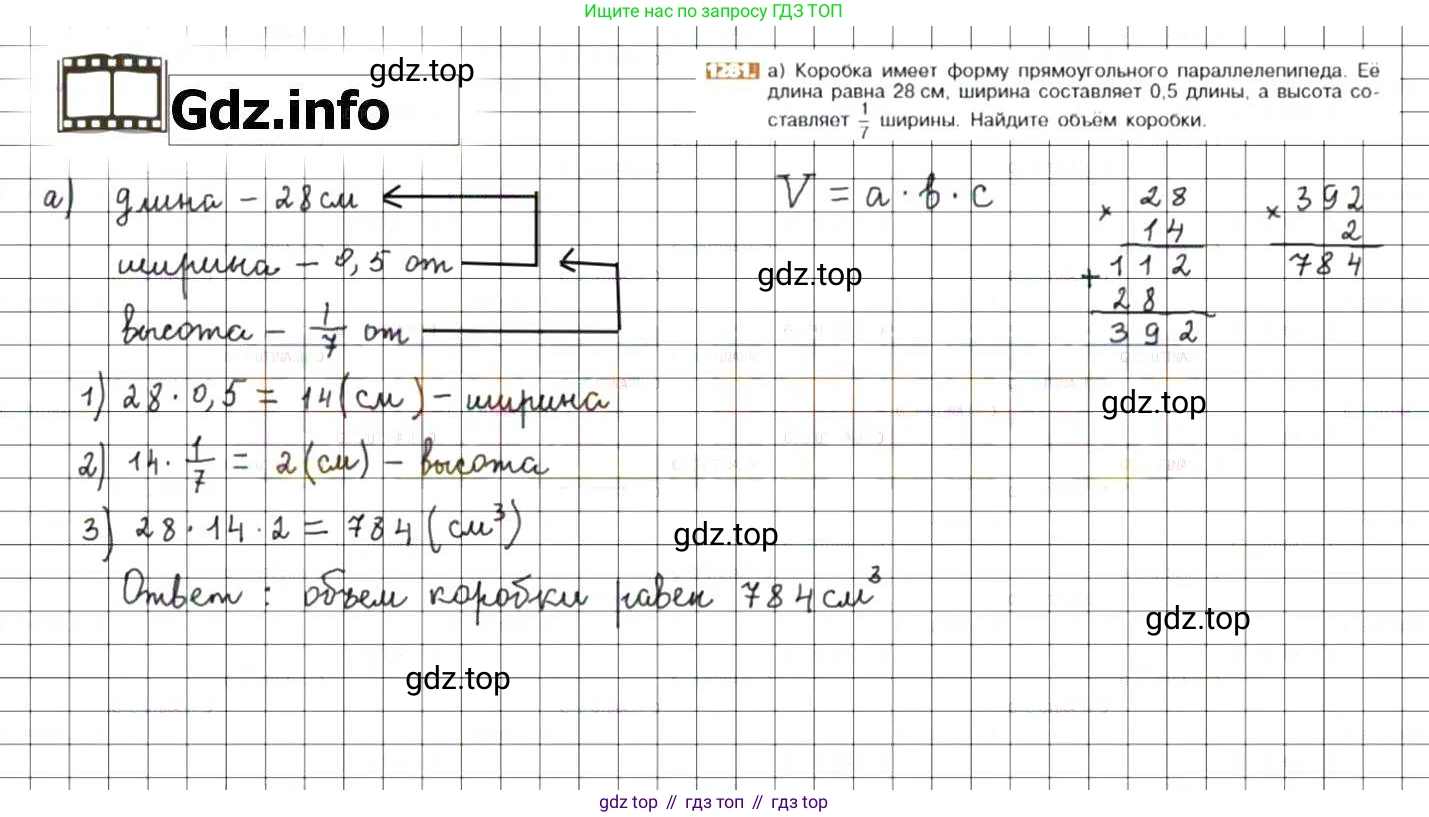 Ищите нас по запросу ГДЗ ТОП
gdz.top
Gdz.info
1281. а) Коробка имеет форму прямоугольного параллелепипеда. Её
длина равна 28 см, ширина составляет 0,5 длины, а высота со-
ставляет 1/7 ширины. Найдите объём коробки.
а) длина – 28 см
ширина – 0,5 от
высота – 1/7 от
V = a · b · c
× 28
14
+ 112
28
392
× 392
2
784
gdz.top
gdz.top
1) 28 · 0,5 = 14 (см) – ширина
2) 14 · 1/7 = 2 (см) – высота
3) 28 · 14 · 2 = 784 (см³)
gdz.top
Ответ : объем коробки равен 784 см³
gdz.top
gdz.top
gdz.top // гдз топ // гдз top